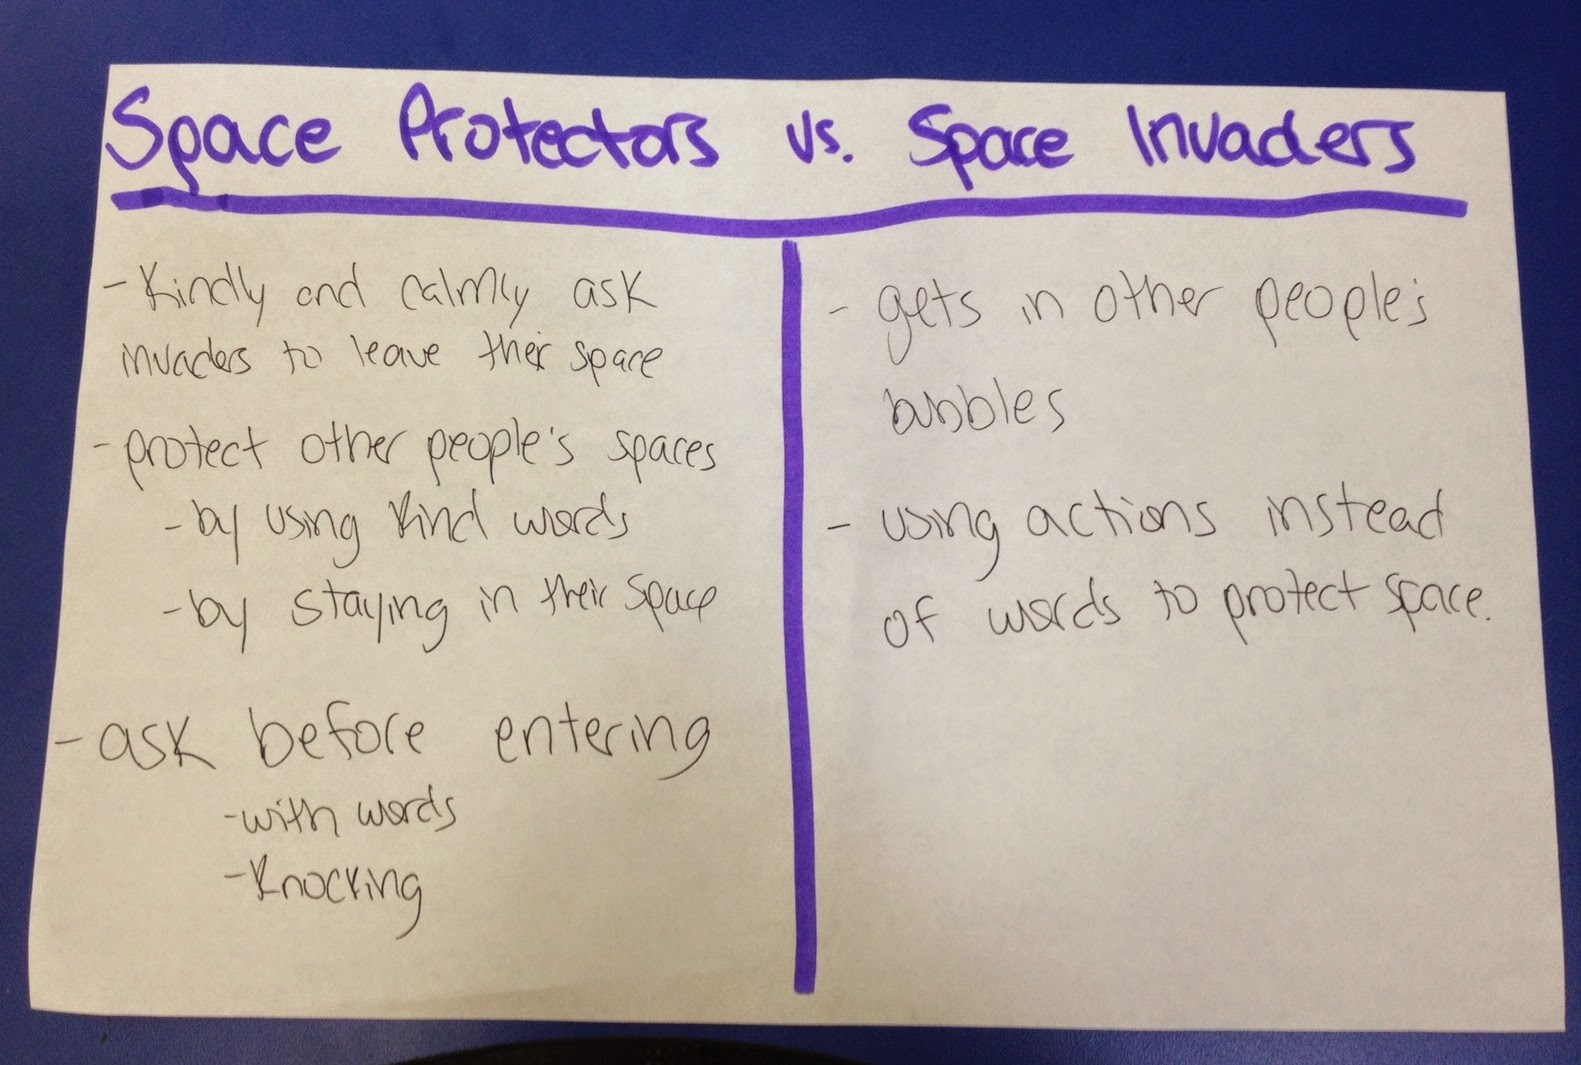 Space Protectors vs. Space Invaders
- Kindly and calmly ask
invaders to leave their space
- protect other people's spaces
- by using kind words
- by staying in their space
- ask before entering
- with words
- Knocking
- gets in other people's
bubbles
- using actions instead
of words to protect space.